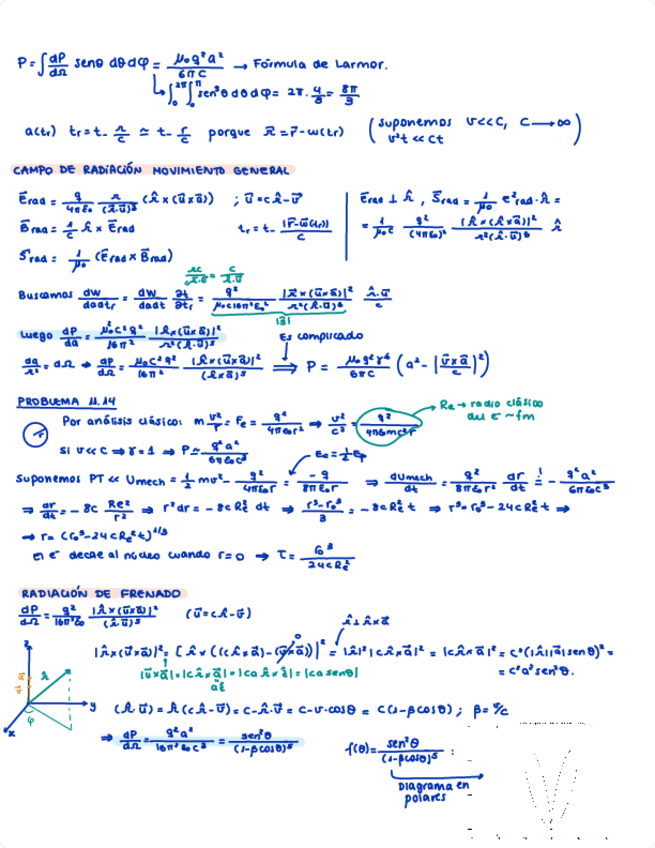 P = ∫ dP/dΩ senθ dθ dφ = μ₀q²a²/6πc → Fórmula de Larmor.
↳ ∫₀^2π ∫₀^π sen³θ dθ dφ = 2π · 4/3 = 8π/3
a(tr) tr = t - 𝓇/c ≃ t - r/c porque 𝓇⃗ = r⃗ - w(tr) (suponemos v<<c, c → ∞
v't << ct)
CAMPO DE RADIACIÓN MOVIMIENTO GENERAL
E⃗rad = q/4πε₀ 𝓇/(𝓇̂·u⃗)³ (𝓇̂ × (u⃗×a⃗)) ; u⃗ = c𝓇̂ - v⃗
E⃗rad ⊥ 𝓇̂, S⃗rad = 1/μ₀c E²rad · 𝓇̂ =
B⃗rad = 1/c 𝓇̂ × E⃗rad tr = t - |r⃗-w⃗(tr)|/c
= 1/μ₀c q²/(4πε₀)² |𝓇̂×(u⃗×a⃗)|²/𝓇²(𝓇̂·u⃗)⁶ 𝓇̂
S⃗rad = 1/μ₀ (E⃗rad × B⃗rad)
𝓇c/𝓇⃗·u⃗ = c/𝓇̂·u⃗
Buscamos dW/da dtr = dW/da dt ∂t/∂tr = q²/μ₀c16π²ε₀² |𝓇⃗×(u⃗×a⃗)|²/𝓇²(𝓇̂·u⃗)⁶ 𝓇̂·u⃗/c
|S⃗|
Luego dP/da = μ₀c²q²/16π² |𝓇̂×(u⃗×a⃗)|²/𝓇²(𝓇̂·u⃗)⁵ Es complicado
da/𝓇² = dΩ → dP/dΩ = μ₀c²q²/16π² |𝓇̂×(u⃗×a⃗)|²/(𝓇̂·u⃗)⁵ ⟹ P = μ₀q²γ⁶/6πc (a² - |v⃗×a⃗/c|²)
PROBLEMA 11.14
Re → radio clásico
del e⁻ ~ fm
Por análisis clásico: m v²/r = Fe = q²/4πε₀r² ⇒ v²/c² = q²/4πε₀mc²r
Si v << c ⇒ γ = 1 ⇒ P ≃ q²a²/6πε₀c³
Ec = ½ Ep
Suponemos PT << Umech = ½mv² - q²/4πε₀r = -q/8πε₀r ⇒ dUmech/dt = q²/8πε₀r² dr/dt = - q²a²/6πε₀c³
⇒ dr/dt = -8c Re²/r² ⇒ r²dr = -8cRe² dt ⇒ r³-r₀³/3 = -8cRe²t ⇒ r³ = r₀³ - 24cRe²t ⇒
⇒ r = (r₀³ - 24cRe²t)^1/3
El e⁻ decae al núcleo cuando r = 0 → τ = r₀³/24cRe²
RADIACIÓN DE FRENADO
dP/dΩ = q²/16π²ε₀ |𝓇̂×(u⃗×a⃗)|²/(𝓇̂·u⃗)⁵ (u⃗ = c𝓇̂ - v⃗)
𝓇̂ ⊥ 𝓇̂×a⃗
|𝓇̂×(u⃗×a⃗)|² = [𝓇̂×((c𝓇̂×a⃗) - (v⃗×a⃗))]² = |𝓇̂|²|c𝓇̂×a⃗|² = |c𝓇̂×a⃗|² = c²(|𝓇̂||a⃗|senθ)² =
|u⃗×a⃗| = |c𝓇̂×a⃗| = |ca𝓇̂×ẑ| = |ca senθ|
= c²a²sen²θ.
aẑ
z
𝓇̂
y
φ
x
(𝓇̂·u⃗) = 𝓇̂(c𝓇̂-v⃗) = c - 𝓇̂·v⃗ = c - v·cosθ = c(1-βcosθ) ; β = v/c
⇒ dP/dΩ = q²a²/16π²ε₀c³ = sen²θ/(1-βcosθ)⁵
f(θ) = sen²θ/(1-βcosθ)⁵ :
Diagrama en
polares